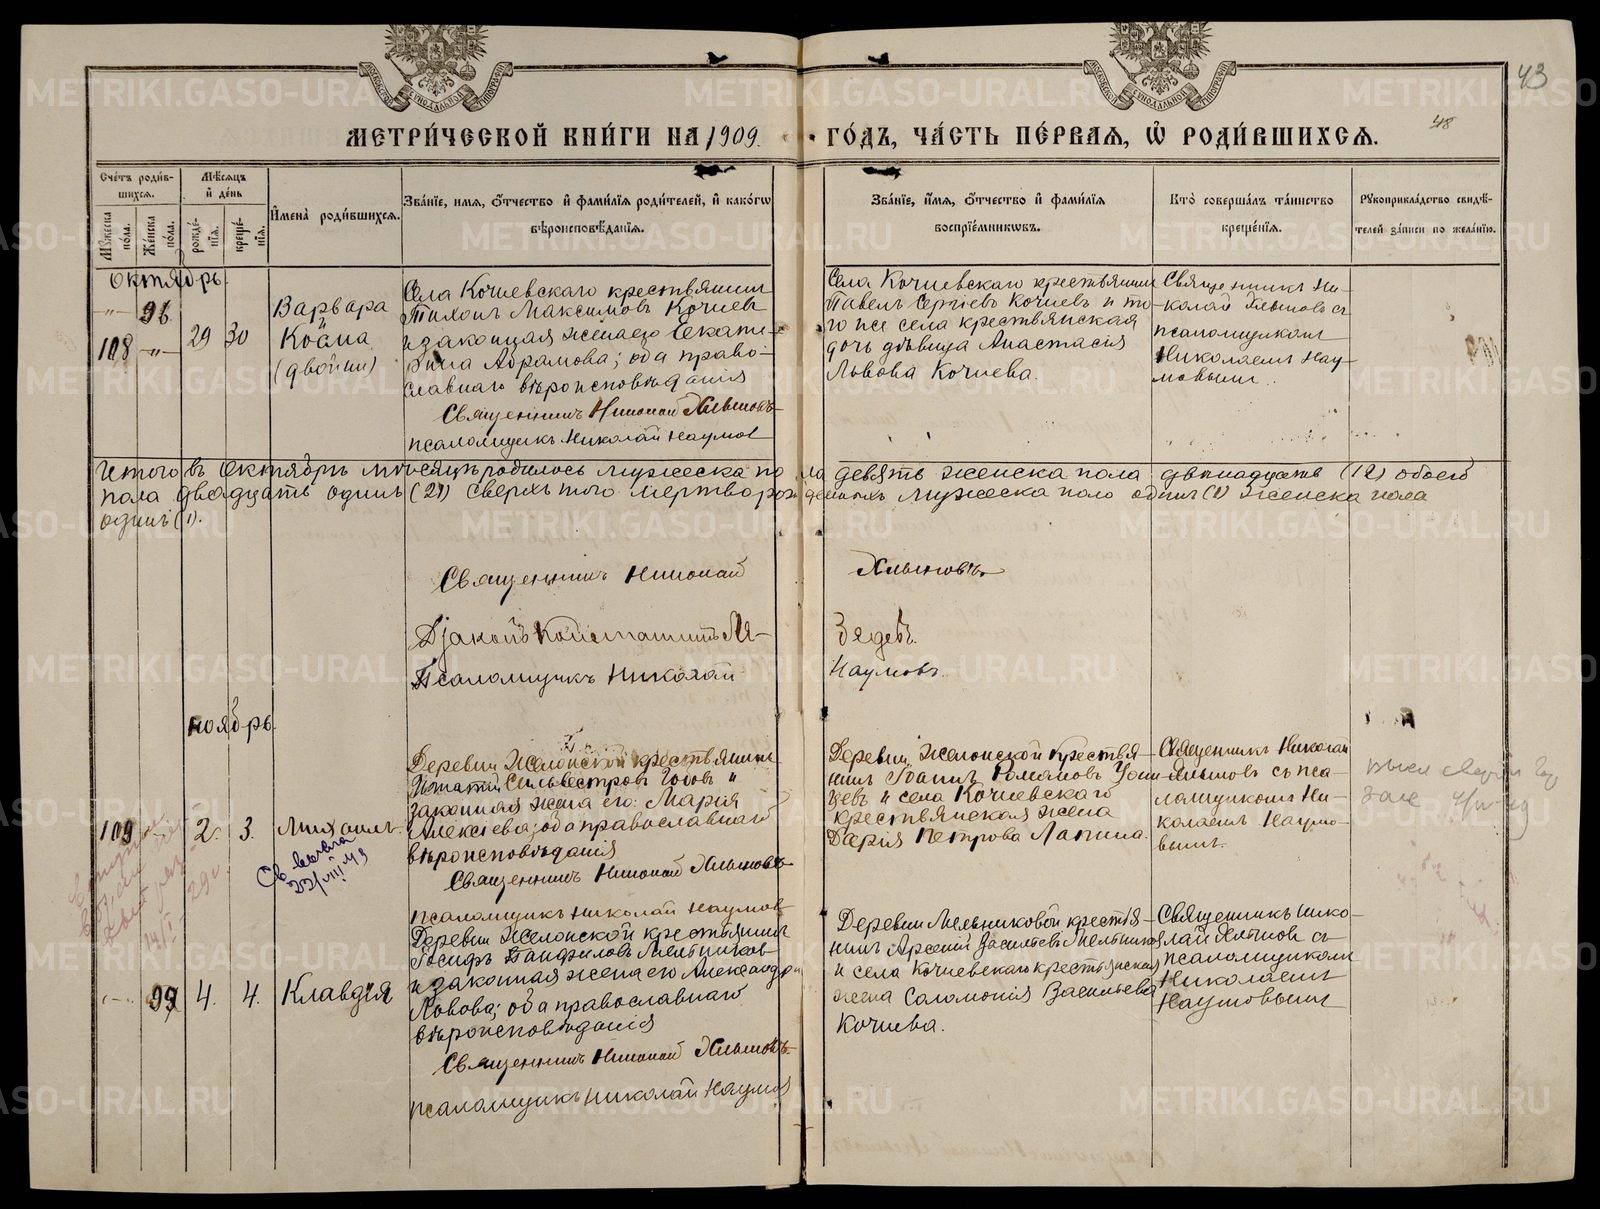 43
48
МЕТРИ́ЧЕСКОЙ КНИ́ГИ НА 1909.
ГО́ДЪ, ЧА́СТЬ ПЕ́РВАЯ, Ѽ РОДИ́ВШИХСЯ.
Сче́тъ роди́в-
шихся.
Му́жеска по́ла.
Же́нска по́ла.
Мѣ́сяцъ
и҆ де́нь
рожде́-
нїя.
креще́-
нїя.
И҆мена̀ роди́вшихся.
Зва́нїе, имя, ѻ҆́тчество и҆ фами́лїя роди́телей, и҆ како́гѡ
вѣроисповѣ́данїя.
Зва́нїе, и҆́мя, ѻ҆́тчество и҆ фами́лїя
воспрїе́мникѡвъ.
Кто̀ соверша́лъ та́инство
креще́нїя.
Рꙋкоприкла́дство свидѣ́-
телей за́писи по жела́нїю.
Октябрь.
96
108
29 30
Варвара
и
Косма
(двойни)
Села Кочневскаго крестьянин
Тихонъ Максимовъ Кочнев
и законная жена его Екате-
рина Абрамова; оба право-
славнаго вѣроисповѣданія
Священникъ Николай Хлыновъ
псаломщикъ Николай Наумов
Села Кочневскаго крестьянин
Павелъ Сергіевъ Кочневъ и то-
го же села крестьянская
дочь дѣвица Анастасія
Львова Кочнева.
Священникъ Ни-
колай Хлыновъ съ
псаломщикомъ
Николаемъ Нау-
мовымъ.
Итого въ Октябрѣ мѣсяцѣ родилось мужеска пола девять женска пола двѣнадцать (12) обоего
пола двадцать одинъ (21) сверхъ того мертворожденныхъ мужеска пола одинъ (1) женска пола
одинъ (1).
Священникъ Николай Хлыновъ.
Діаконъ Константинъ
Псаломщикъ Николай Наумовъ.
Ноябрь.
109
2. 3.
Михаилъ.
Деревни Желонской крестьянин
Игнатій Сильвестровъ и
законная жена его: Марія
Алексѣева; оба православнаго
вѣроисповѣданія
Священникъ Николай Хлыновъ
псаломщикъ Николай Наумов
Деревни Желонской крестья-
нинъ Іоаннъ Романовъ
и села Кочневскаго
крестьянская жена
Дарія Петрова Лапина.
Священникъ Николай
Хлыновъ съ пса-
ломщикомъ Ни-
колаемъ Наумо-
вымъ.
99 4. 4.
Клавдія
Деревни Желонской крестьянин
Іосифъ Панфиловъ Мельников
и законная жена его Александра
Львова; оба православнаго
вѣроисповѣданія
Священникъ Николай Хлыновъ
псаломщикъ Николай Наумов
Деревни Мельниковой крестья-
нинъ Арсеній Васильевъ Мельников
и села Кочневскаго крестьянская
жена Саломонія Васильева
Кочнева.
Священникъ Нико-
лай Хлынов съ
псаломщикомъ
Николаемъ
Наумовымъ
METRIKI.GASO-URAL.RU